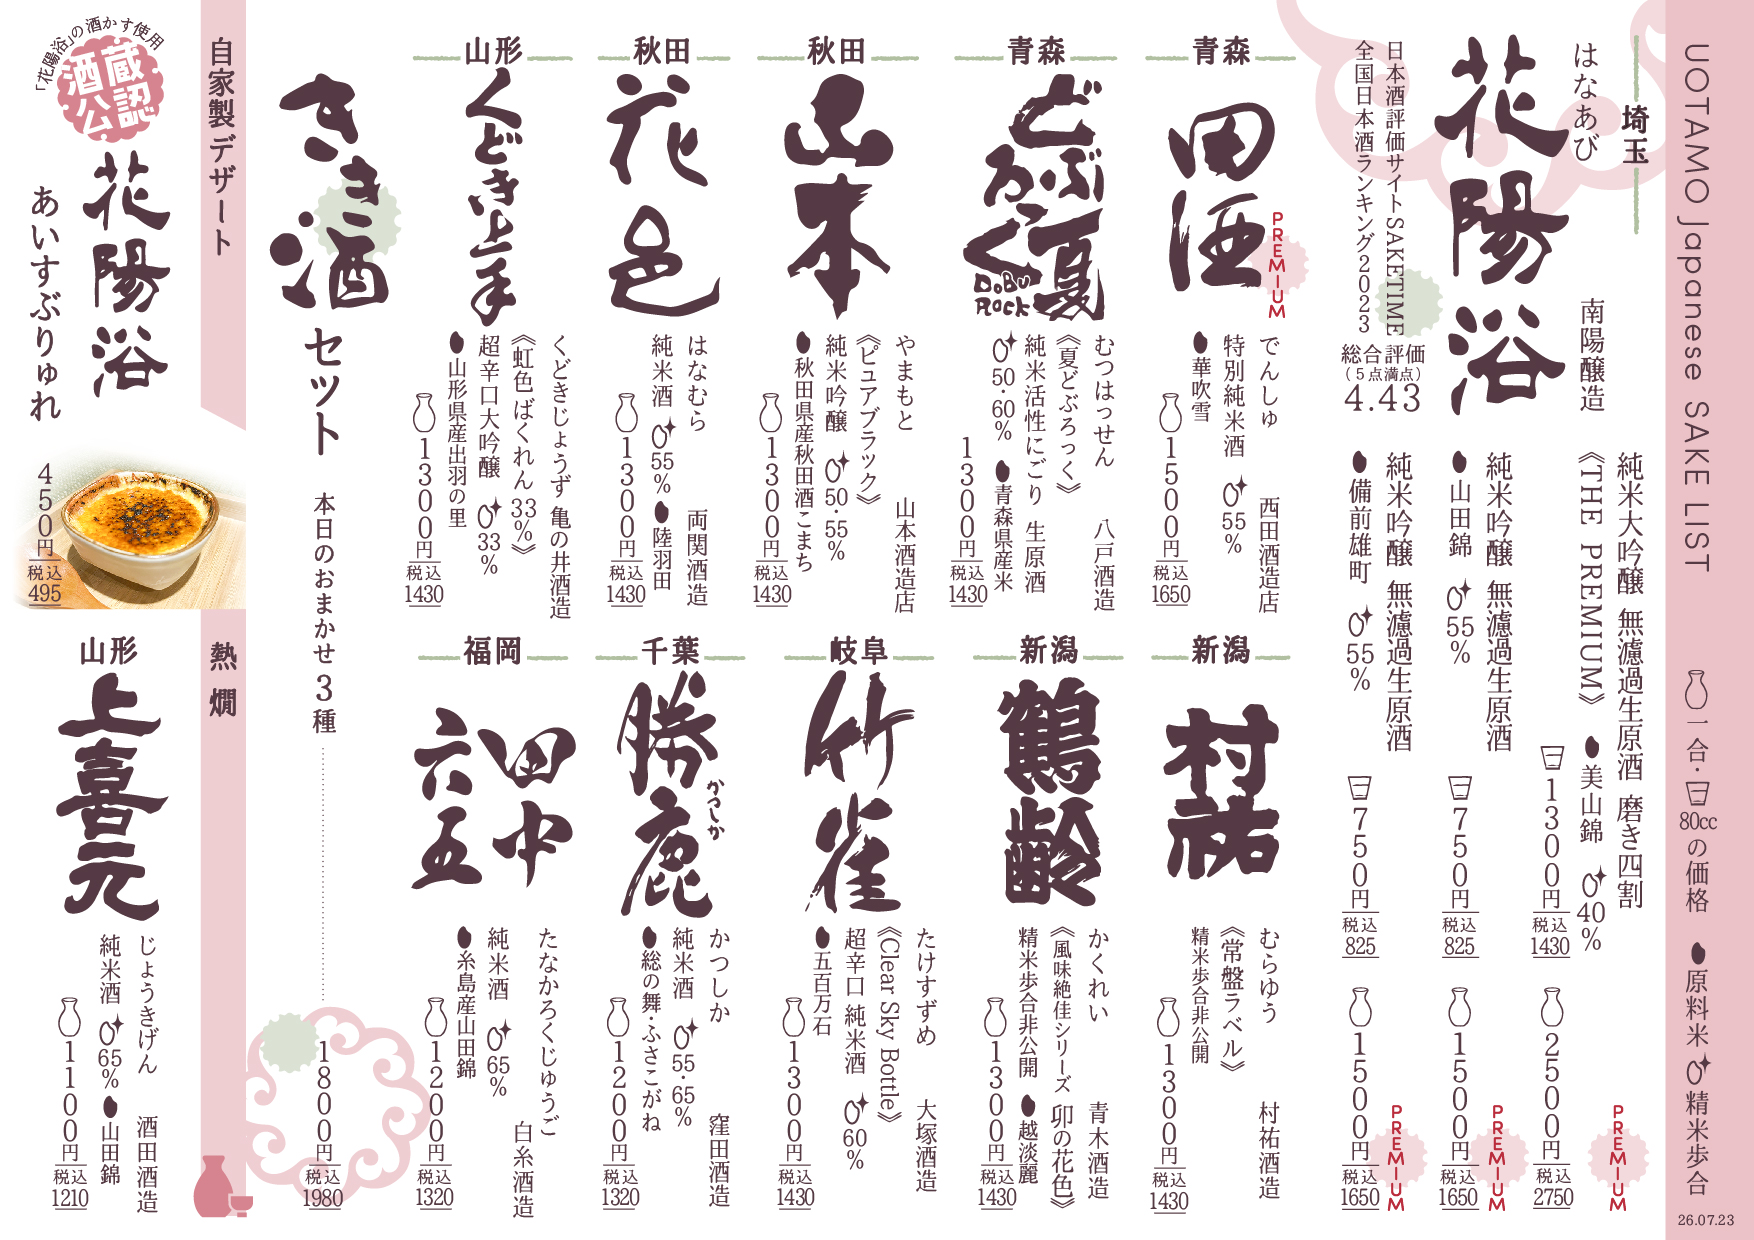 UOTAMO Japanese SAKE LIST
一合・80ccの価格
原料米 精米歩合
26.07.23
埼玉
はなあび
花陽浴
南陽醸造
日本酒評価サイトSAKETIME
全国日本酒ランキング2023
総合評価
(5点満点)
4.43
純米大吟醸 無濾過生原酒 磨き四割
《THE PREMIUM》 美山錦 40%
1300円
税込
1430
2500円
税込
2750
PREMIUM
純米吟醸 無濾過生原酒
山田錦 55%
750円
税込
825
1500円
税込
1650
PREMIUM
純米吟醸 無濾過生原酒
備前雄町 55%
750円
税込
825
1500円
税込
1650
PREMIUM
青森
田酒
PREMIUM
でんしゅ 西田酒造店
特別純米酒 55%
華吹雪
1500円
税込
1650
青森
どぶろっく夏
DoBu
Rock
むつはっせん 八戸酒造
《夏どぶろっく》
純米活性にごり 生原酒
50・60% 青森県産米
1300円
税込
1430
秋田
山本
やまもと 山本酒造店
《ピュアブラック》
純米吟醸 50・55%
秋田県産秋田酒こまち
1300円
税込
1430
秋田
花邑
はなむら 両関酒造
純米酒 55% 陸羽田
1300円
税込
1430
山形
くどき上手
くどきじょうず 亀の井酒造
《虹色ばくれん 33%》
超辛口大吟醸 33%
山形県産出羽の里
1300円
税込
1430
新潟
村祐
むらゆう 村祐酒造
《常盤ラベル》
精米歩合非公開
1300円
税込
1430
新潟
鶴齢
かくれい 青木酒造
《風味絶佳シリーズ 卯の花色》
精米歩合非公開 越淡麗
1300円
税込
1430
岐阜
竹雀
たけすずめ 大塚酒造
《Clear Sky Bottle》
超辛口 純米酒 60%
五百万石
1300円
税込
1430
千葉
勝鹿
かつしか
かつしか 窪田酒造
純米酒 55・65%
総の舞・ふさこがね
1200円
税込
1320
福岡
田中六五
たなかろくじゅうご 白糸酒造
純米酒 65%
糸島産山田錦
1200円
税込
1320
きき酒
セット 本日のおまかせ3種
1800円
税込
1980
自家製デザート
「花陽浴」の酒かす使用
酒蔵公認
花陽浴
あいすぶりゅれ
450円
税込
495
熱燗
山形
上喜元
じょうきげん 酒田酒造
純米酒 65% 山田錦
1100円
税込
1210